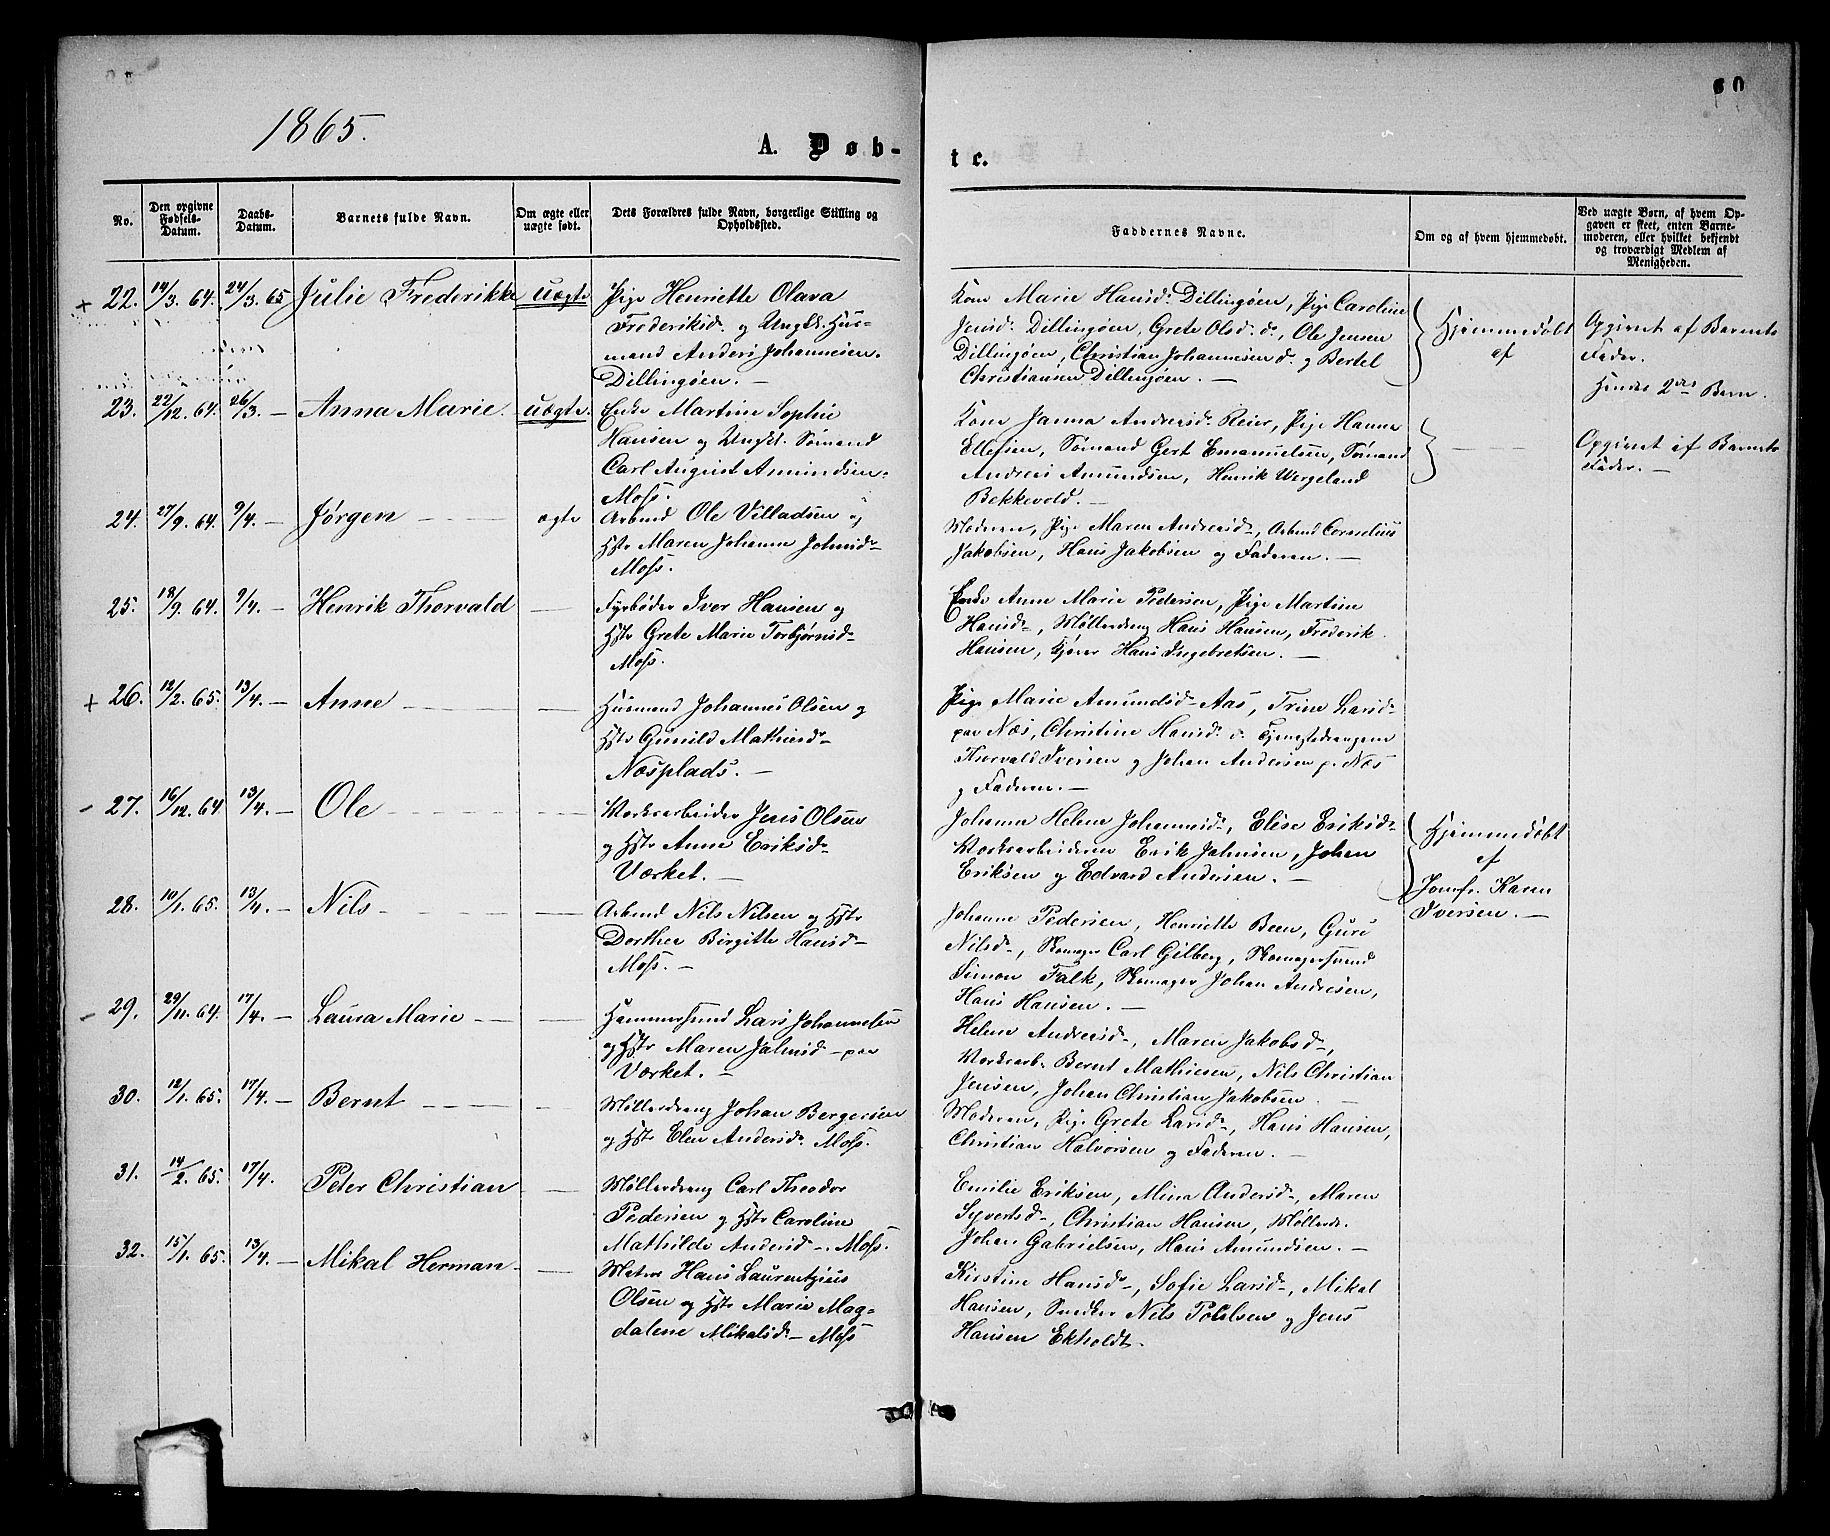 60
1865.
A. Døb-
te.
No.
Den opgivne Fødsels-Datum.
Daabs-Datum.
Barnets fulde Navn.
Om ægte eller uægte født.
Dets Forældres fulde Navn, borgerlige Stilling og Opholdssted.
Faddernes Navne.
Om og af hvem hjemmedøbt.
Ved uægte Børn, af hvem Op-
gaven er skeet, enten Barne-
moderen, eller hvilket bekjendt
og troværdigt Medlem af
Menigheden.
+ 22. 14/3. 64. 24/3. 65 Julie Frederikke uægte
Pige Henriette Olava
Frederiksd. og Ungk. Hus-
mand Anders Johannesen.
Dillingøen. —
Kone Marie Hansd. Dillingøen, Pige Caroline
Jensd. Dillingøen, Grete Olsd. do, Ole Jensen
Dillingøen, Christian Johannesen do. og Bertel
Christiansen Dillingøen. —
Hjemmedøbt
af
Opgivet af Barnets
Fader.
Hendes 2det Barn.
23. 22/12. 64. 26/3. — Anna Marie uægte.
Enke Martine Sophie
Hansen og Ungk. Sømand
Carl August Amundsen.
Moss.
Kone Janna Andersd. Reier, Pige Hanna
Ellefsen, Sømand Gert Emanuelsen, Sømand
Andreas Amundsen, Henrik Wergeland
Bekkevold. —
— — —
Opgivet af Barnets
Fader. —
24. 27/9. 64. 9/4. — Jørgen — — — ægte
Arbmd Ole Villadsen og
Hstr Maren Johanne Johnsd.
Moss.
Moderen, Pige Maren Andreasd., Arbmd Cornelius
Jakobsen, Hans Jakobsen og Faderen. —
25. 18/9. 64. 9/4. — Henrik Thorvald —
Fyrbøder Iver Hansen og
Hstr Grete Marie Torbjørnsd.
Moss.
Enke Anne Marie Pedersen, Pige Martine
Hansd., Møllerdreng Hans Hansen, Frederik
Hansen, Kjører Hans Ingebretsen. —
+ 26. 12/2. 65. 13/4. — Anne — — —
Husmand Johannes Olsen og
Hstr Gunild Mathisd.
Næsplads. —
Pige Marie Amundsd. Aas, Trine Larsd.
paa Næs, Christine Hansd. do. Tjenestedrengene
Thorvald Iversen og Johan Andersen p. Næs
og Faderen. —
— 27. 16/12. 64 13/4. — Ole — — —
Værksarbeider Jens Olsen
og Hstr Anne Eriksd.
Værket. —
Johanna Helene Johannesd., Elise Eriksd.
Værksarbeiderne Erik Johnsen, Johan
Eriksen og Edvard Andersen. —
Hjemmedøbt
af
Jomfr. Karen
Iversen. —
28. 10/1. 65. 13/4. — Nils — — —
Arbmd Nils Nilsen og Hstr
Dorthea Birgitte Hansd.
Moss. —
Johanne Pedersen, Henriette Been, Guri
Nilsd., Skomager Carl Gilberg, Skomagersvend
Simon Falk, Skomager Johan Andresen,
Hans Hansen. —
— 29. 29/11. 64. 17/4. — Laura Marie — —
Hammersmed Lars Johannesen
og Hstr Maren Johnsd. paa
Værket. —
Helene Andreasd., Maren Jakobsd.,
Værksarb. Bernt Mathiesen, Nils Christian
Jensen, Johan Christian Jakobsen. —
30. 12/1. 65. 17/4. — Bernt — — —
Møllerdreng Johan Bergersen
og Hstr Elen Andersd. Moss.
Moderen, Pige Grete Larsd., Hans Hansen,
Christian Halvorsen og Faderen. —
31. 14/2. 65. 17/4. Peter Christian —
Møllerdreng Carl Theodor
Pedersen og Hstr Caroline
Mathilde Andersd. Moss.
Emilie Eriksen, Mina Andersd., Maren
Syvertsd., Christian Hansen, Møllerdr.
Johan Gabrielsen, Hans Amundsen. —
32. 15/1. 65. 13/4. — Mikal Herman —
Matros Hans Laurentzius
Olsen og Hstr Marie Mag-
dalene Mikalsd. Moss
Kirstine Hansd., Sofie Larsd., Mikal
Hansen, Snedker Nils Poulsen og Jens
Hansen Ekholdt.